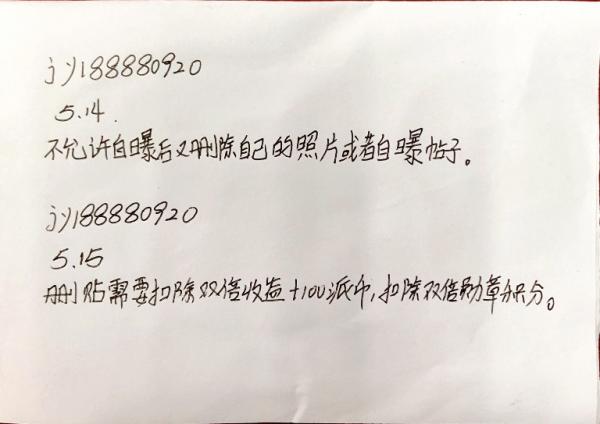 jy188880920
5.14.
不允许自曝后又删除自己的照片或者自曝帖子。
jy188880920
5.15
删贴需要扣除双倍收益+100派币,扣除双倍勋章积分。